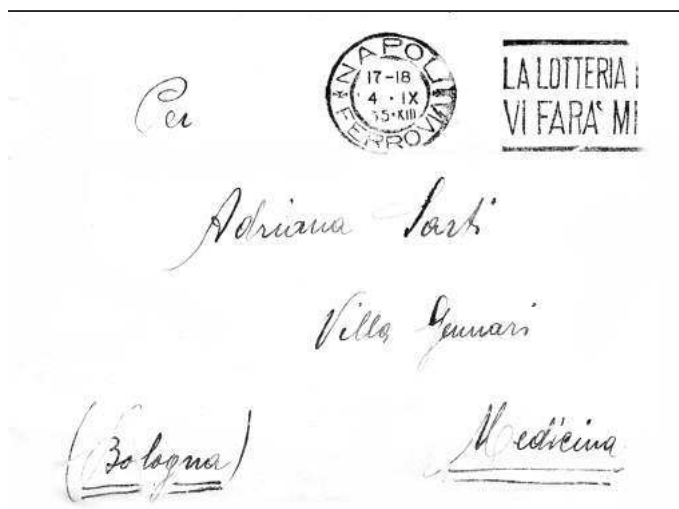 NAPOLI
17-18
4 · IX
35·XIII
FERROVIA
LA LOTTERIA
VI FARA' MI
Per
Adriana Sarti
Villa Gennari
(Bologna)
Medicina